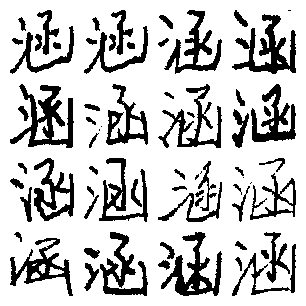 涵涵涵涵
涵涵涵涵
涵涵涵涵
涵涵涵涵